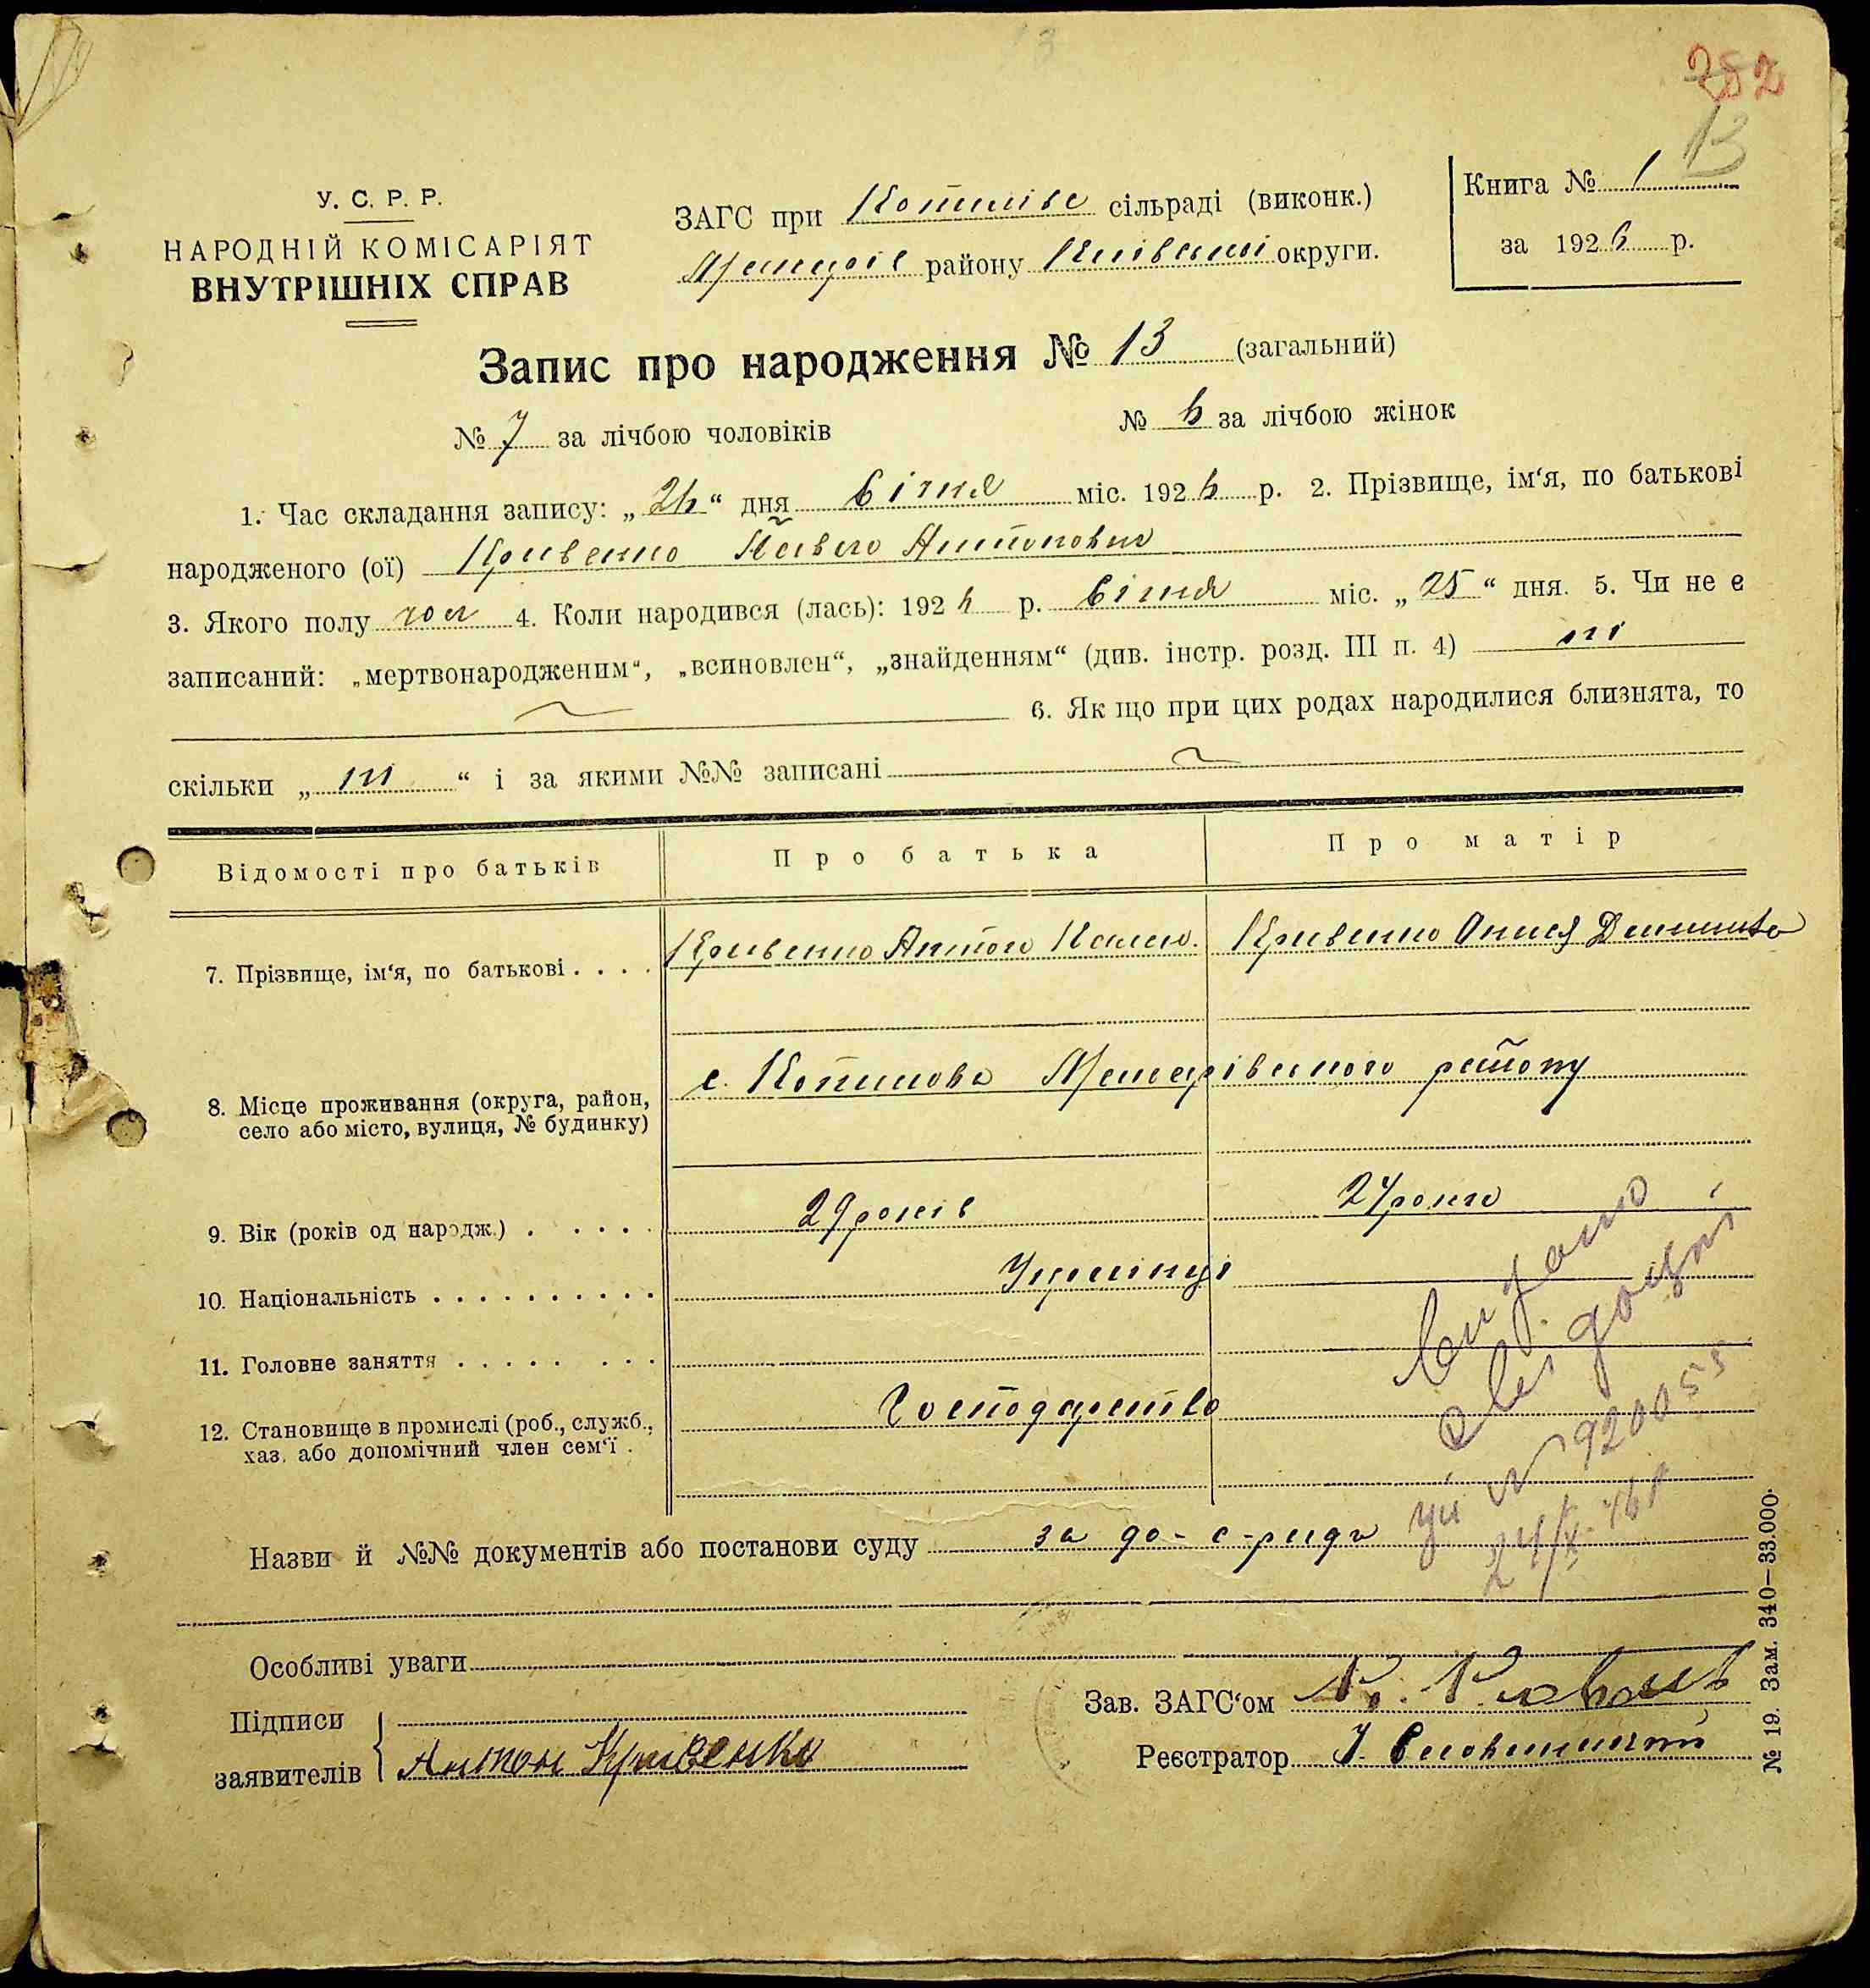 13
252
13
У. С. Р. Р.
НАРОДНІЙ КОМІСАРІЯТ
ВНУТРІШНІХ СПРАВ
ЗАГС при сільраді (виконк.)
району Київської округи.
Книга № 1
за 1926 р.
Запис про народження № 13 (загальний)
№ 7 за лічбою чоловіків № 6 за лічбою жінок
1. Час складання запису: „26“ дня Січня міс. 1926 р. 2. Прізвище, ім‘я, по батькові
народженого (ої) Кривенко Павло Антонович
3. Якого полу чол 4. Коли народився (лась): 1926 р. Січня міс. „25“ дня. 5. Чи не є
записаний: „мертвонародженим“, „всиновлен“, „знайденням“ (див. інстр. розд. III п. 4) ні
6. Як що при цих родах народилися близнята, то
скільки „ні“ і за якими №№ записані
Відомості про батьків Про батька Про матір
7. Прізвище, ім‘я, по батькові . . . . Кривенко Антон Кривенко Онися
8. Місце проживання (округа, район,
село або місто, вулиця, № будинку)
с. району
9. Вік (років од народж.) . . . . . 29 років 24 роки
10. Національність . . . . . . . . . . Українці
11. Головне заняття . . . . . . . .
12. Становище в промислі (роб., служб.,
хаз. або допомічний член сем‘ї .
Господарство
Видано
№ 920055
Назви й №№ документів або постанови суду за
Особливі уваги
Підписи
заявителів
Антон Кривенко
Зав. ЗАГС‘ом
Реєстратор
№ 19. Зам. 340—33.000.